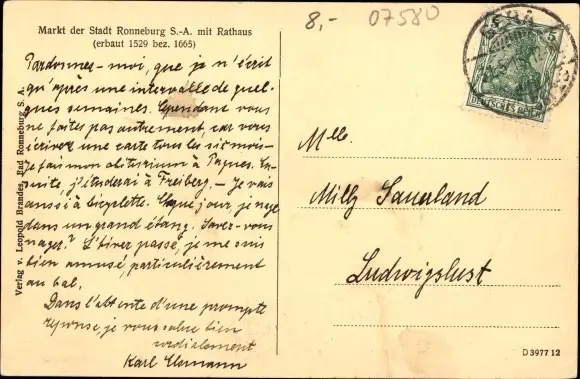 8,- 07580
Markt der Stadt Ronneburg S.-A. mit Rathaus
(erbaut 1529 bez. 1665)
Pardonnez-moi, que je n'écrit
qu'après une intervalle de quel-
ques semaines. Cependant vous
ne faites pas autrement, car vous
écrivez une carte tous les six mois.-
Je fais mon abiturium à Pâques. En-
suite, j'étuderai à Freiberg. - Je vais
aussi à bicyclette. Chaque jour je nage
dans un grand étang. Savez-vous
nager? L'hiver passé, je me suis
bien amusé, particulièrement
au bal.
Dans l'attente d'une prompte
réponse, je vous salue bien
cordialement
Karl
Verlag v. Leopold Brandes, Bad Ronneburg S. A.
GERA
5
DEUTSCHES REICH
Mlle.
Milly Sauerland
Ludwigslust
D 3977 12